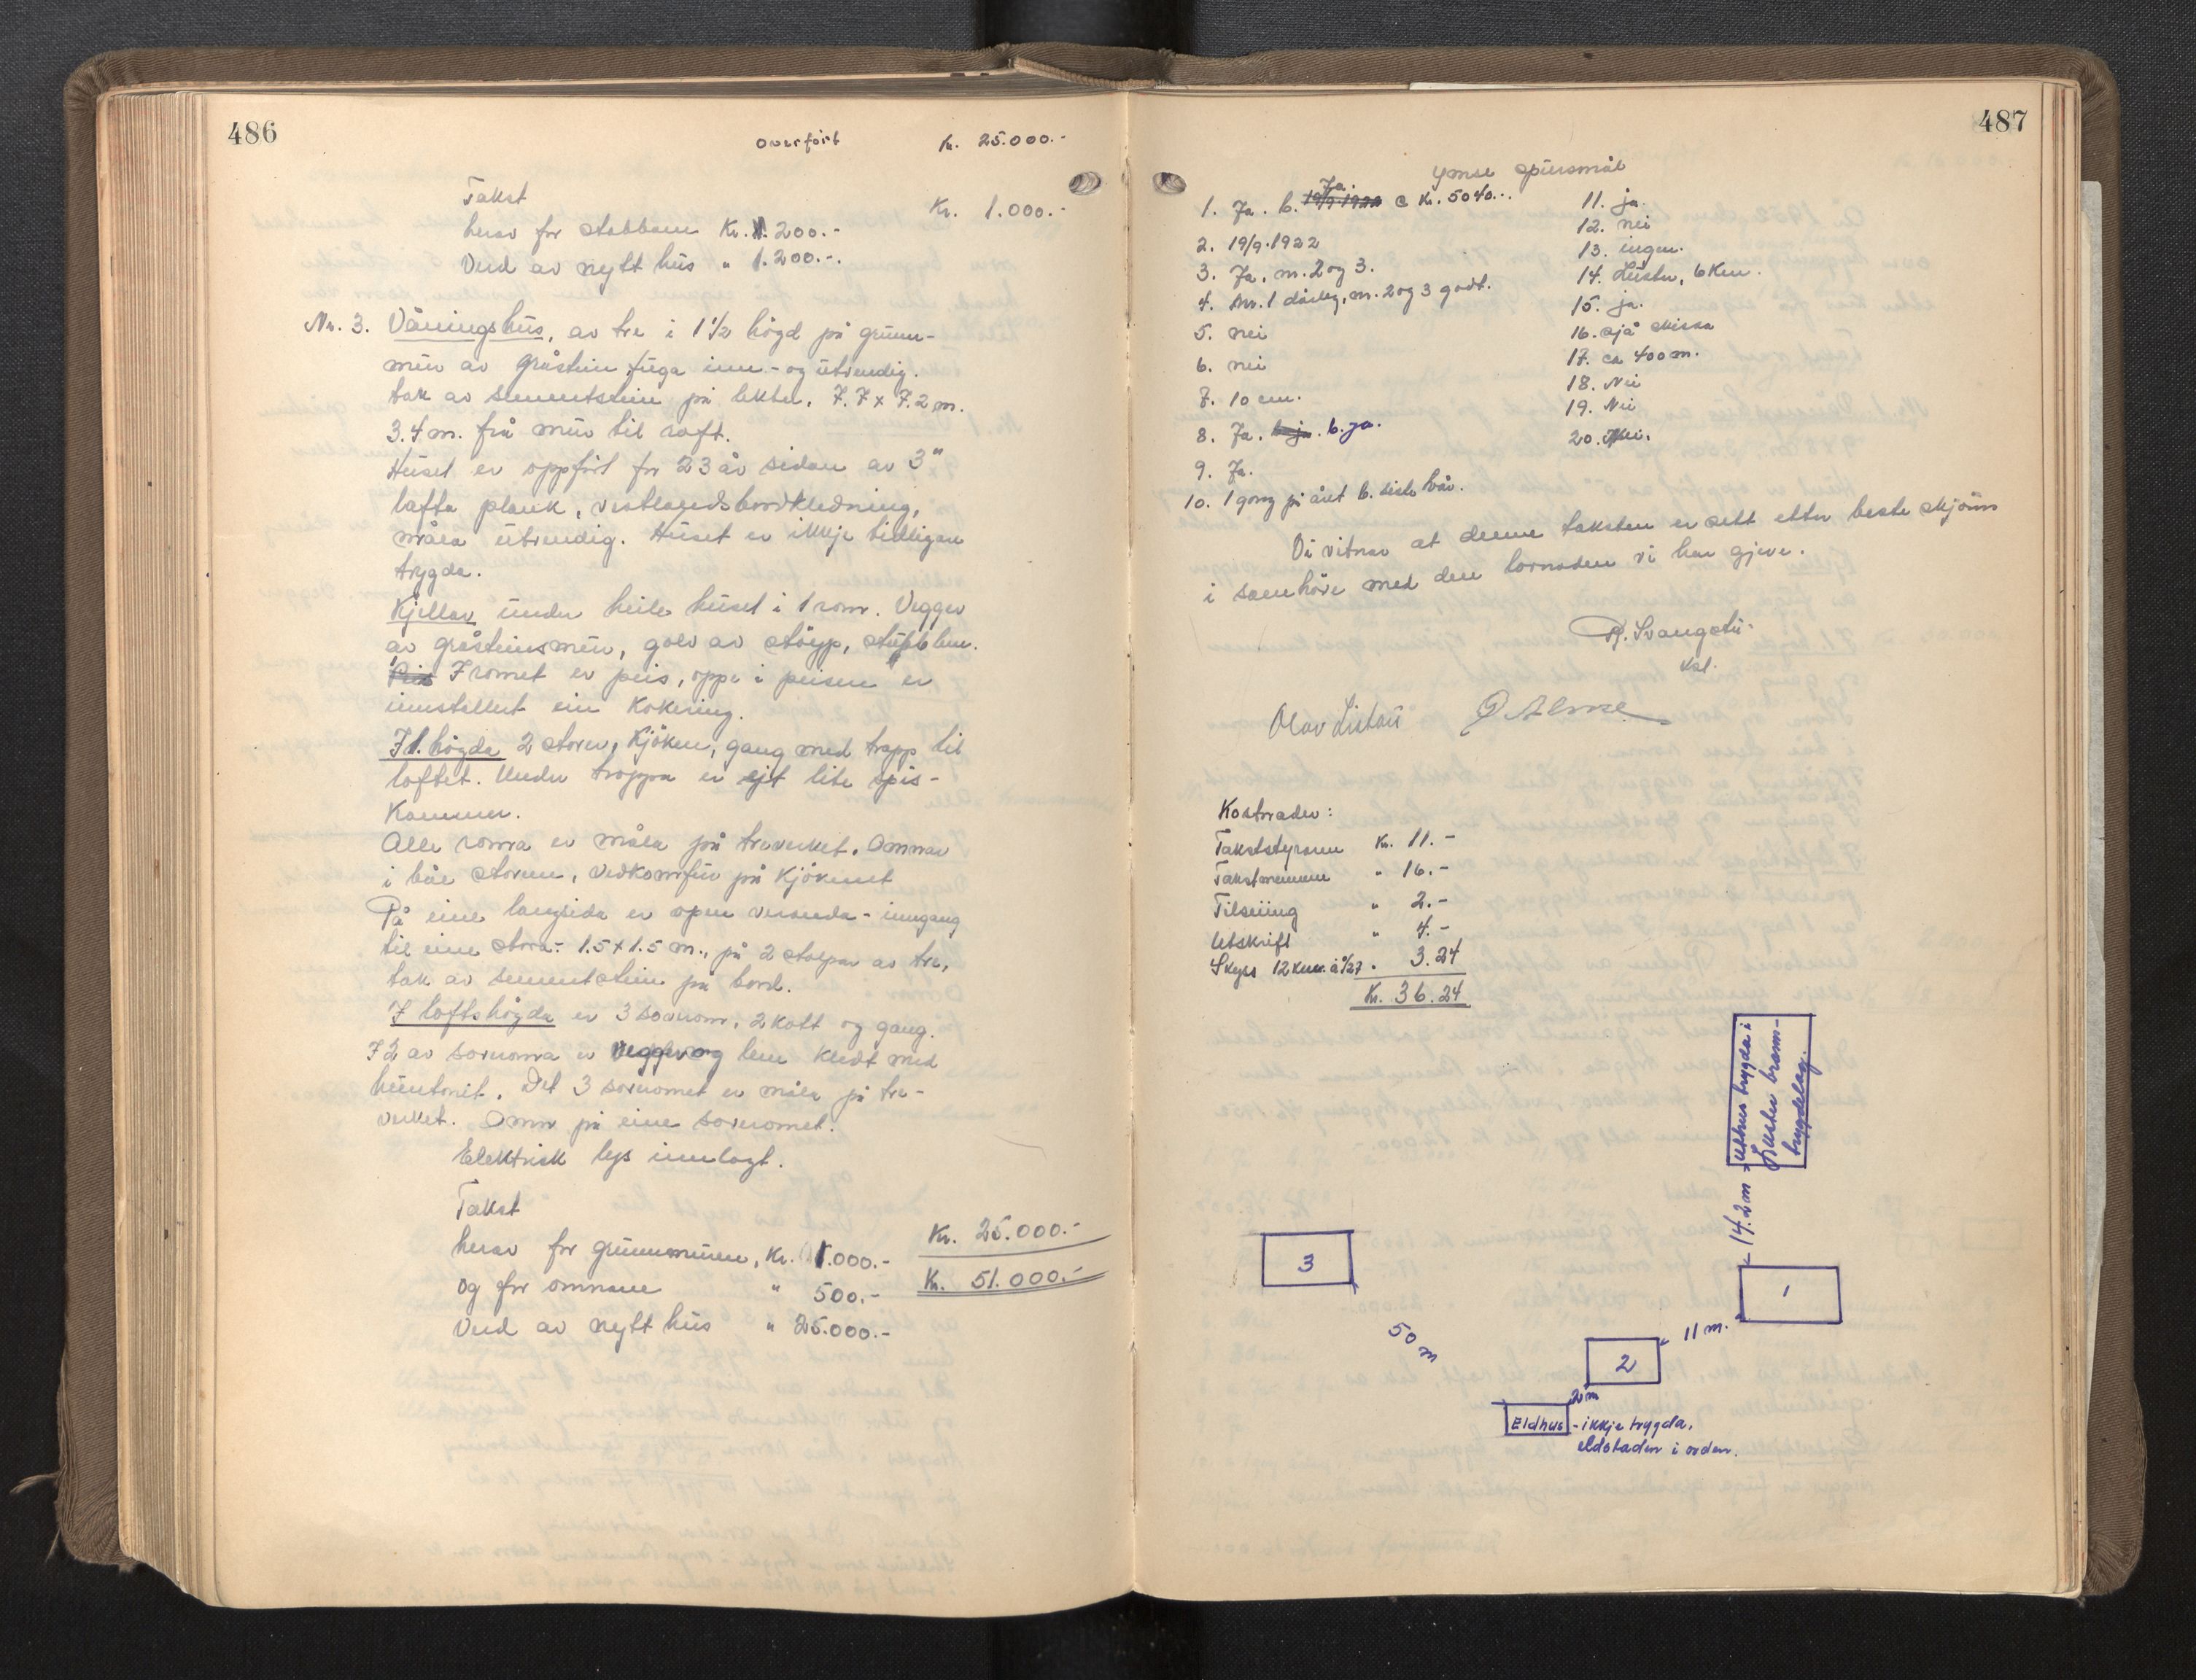 486
Overført Kr. 25.000.-
Takst Kr. 1.000.-
herav for stabbane Kr. 200.-
Verd av nytt hus " 1.200.-
Nr. 3. Våningshus, av tre i 1 1/2 högd på grunn-
mur av gråstein fuga inn- og utvendig.
tak av sementstein på lekter. 7.7 x 7.2 m.
3.4 m. frå mur til raft.
Huset er oppfört for 23 år sidan av 3"
lafta plank, vestlandsbordkledning,
måla utvendig. Huset er ikkje tidligare
trygda.
Kjellar under heile huset i 1 rom. Vegger
av gråsteinsmur, golv av støyp, stubblem.
I romet er peis, oppe i peisen er
innstallert ein kokering.
I 1. högda 2 stover, kjöken, gang med trapp til
loftet. Under trappa er ejt lite spis-
kammer.
Alle romma er måla på treverket. Omnar
i båe stovene, vedkomfur på kjökenet
På eine langsida er open veranda - inngang
til eine stova - 1.5 x 1.5 m., på 2 stolpar av tre,
tak av sementstein på bord.
I loftshögda er 3 soverom, 2 kott og gang.
I 2 av soveroma er vegger og lem kledt med
huntonit. Det 3 soveromet er måla på tre-
verket. Omn på eine soveromet.
Elektrisk lys innlagt.
Takst Kr. 25.000.-
herav for grunnmuren, Kr. 1.000.- Kr. 51.000.-
og for omnane " 500.-
Verd av nytt hus " 25.000.-
487
Ymse spursmål
1. Ja. b. Ja. c Kr. 5040.-.
2. 19/9.1922
3. Ja, nr. 2 og 3.
4. Nr. 1 dårleg, nr. 2 og 3 godt.
5. nei
6. nei
7. 10 cm.
8. Ja. b. ja.
9. Ja.
10. 1 gong på året b. siste vår.
11. ja.
12. nei
13. ingen.
14. Luster, 6 km.
15. ja.
16. sjå skissa
17. ca 400 m.
18. Nei
19. Nei
20. Nei.
Vi vitnar at denne taksten er sett etter beste skjönn
i samhöve med den lovnaden vi har gjeve.
R. Svangstu
Kst.
Olav Lirhus O Alme
Kostnader:
Takststyraren Kr. 11.-
Takstmennene " 16.-
Tilseiing " 2.-
Utskrift " 4.-
Skyss 12 km. à 0/27 " 3.24
Kr. 36.24
Uthus trygda i
Luster brann-
trygdelag.
14.2 m
3
1
11 m.
50 m
2
2 m
Eldhus - ikkje trygda,
eldstaden i orden.